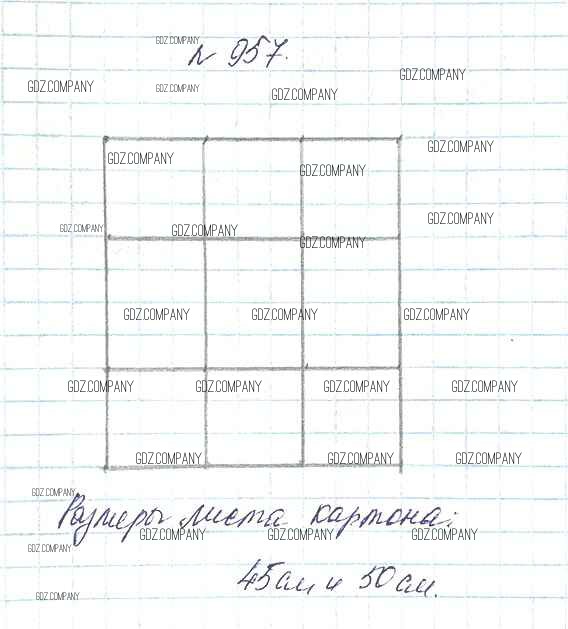 GDZ.COMPANY
№ 957.
GDZ.COMPANY
GDZ.COMPANY
GDZ.COMPANY
GDZ.COMPANY
GDZ.COMPANY
GDZ.COMPANY
GDZ.COMPANY
GDZ.COMPANY
GDZ.COMPANY
GDZ.COMPANY
GDZ.COMPANY
GDZ.COMPANY
GDZ.COMPANY
GDZ.COMPANY
GDZ.COMPANY
GDZ.COMPANY
GDZ.COMPANY
GDZ.COMPANY
GDZ.COMPANY
GDZ.COMPANY
GDZ.COMPANY
GDZ.COMPANY
GDZ.COMPANY
Размеры листа картона:
GDZ.COMPANY
GDZ.COMPANY
GDZ.COMPANY
GDZ.COMPANY
45см и 50 см.
GDZ.COMPANY